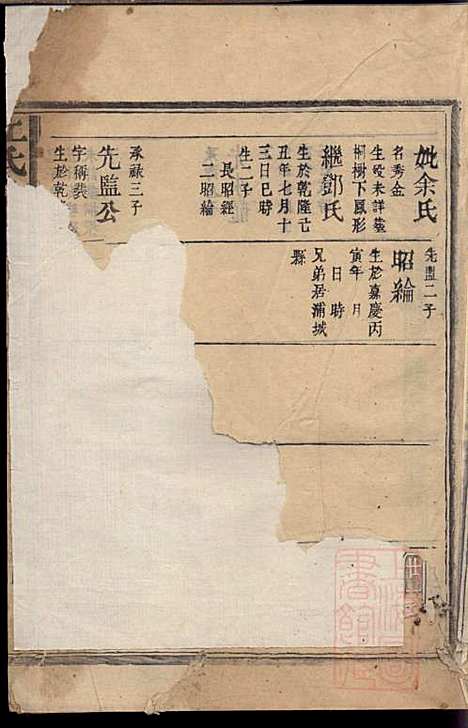 妣余氏
名秀金
生歿未詳葬
桐樹下鳳形
繼鄧氏
生於乾隆己
丑年七月十
三日巳時
生二子
長昭經
二昭綸
承祿三子
先監公
字稱裴
生於乾
先盟二子
昭綸
生於嘉慶丙
寅年 月
日 時
兄弟居浦城
縣